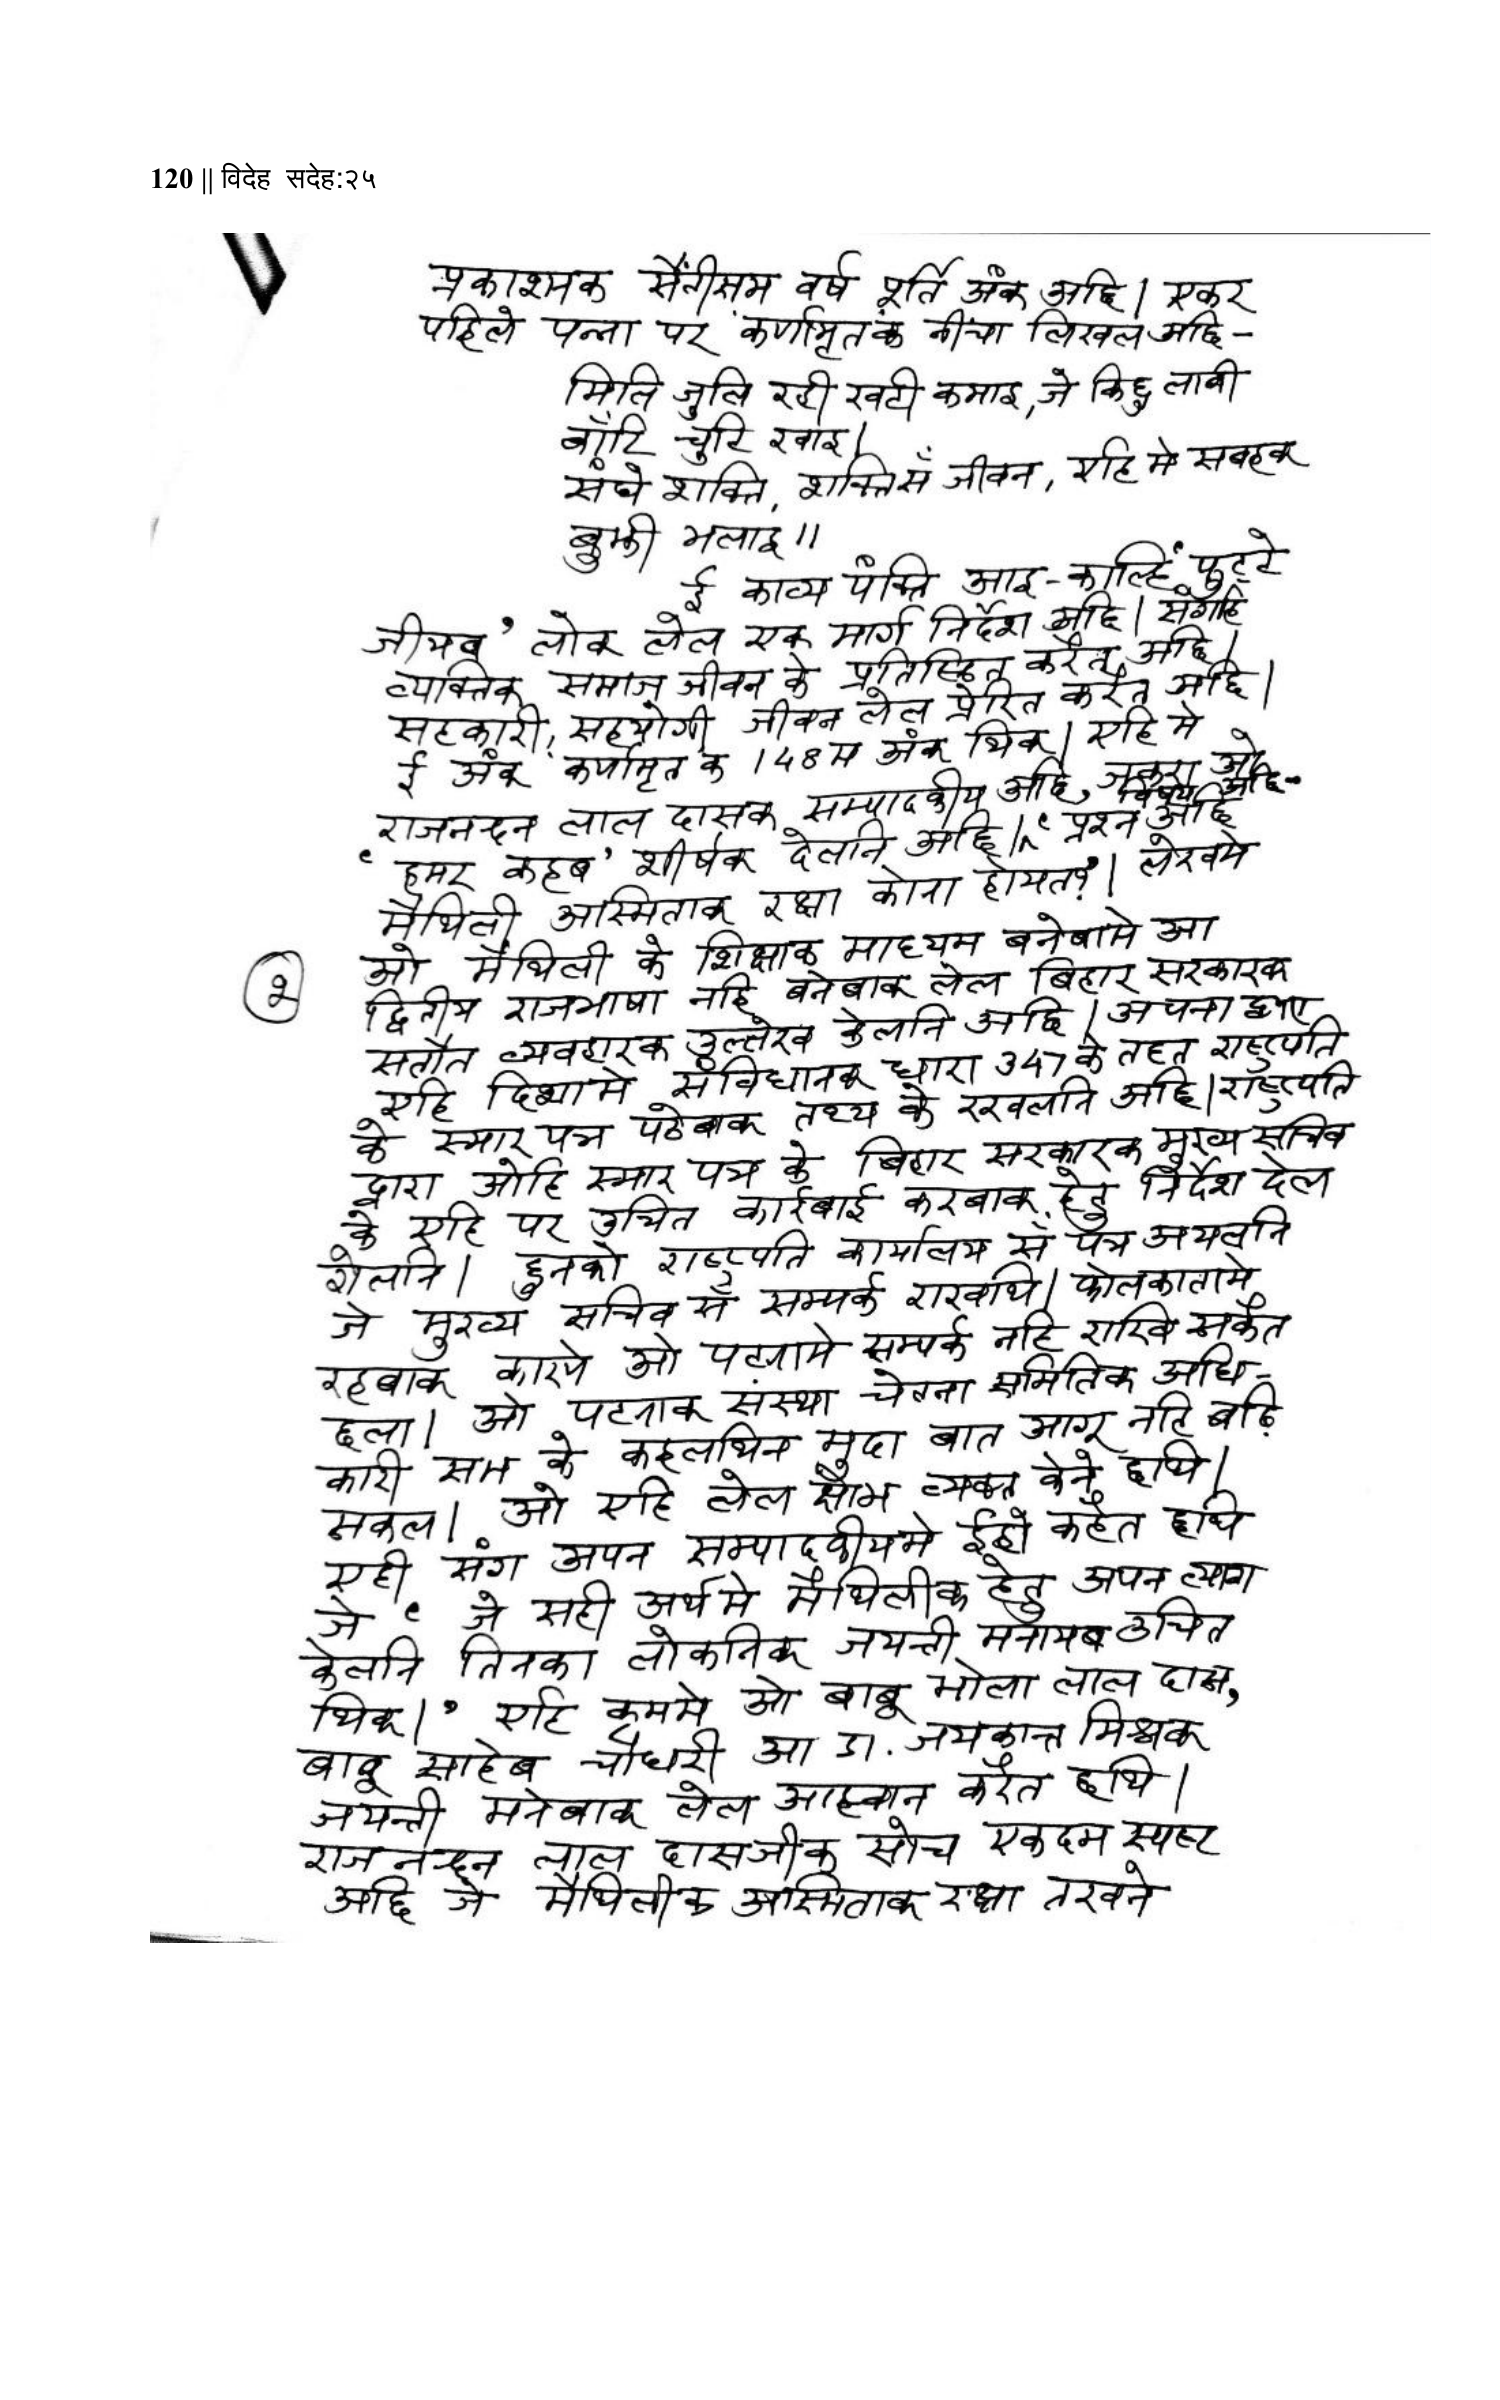 120 || विदेह सदेह:२५
प्रकाशनक सैंतीसम वर्ष पूर्ति अंक अछि। एकर
पहिले पन्ना पर 'कर्णामृत'क नीचा लिखल अछि-
मिलि जुलि रही खटी कमाइ, जे किछु लाबी
बाँटि चुटि खाइ।
संघे शक्ति, शक्तिसँ जीवन, एहि मे सबहक
बुझी भलाइ॥
ई काव्य पंक्ति आइ-काल्हि 'फुट्टे
जीयब' लोक लेल एक मार्ग निर्देश अछि। संगहि
व्यक्तिक समाज जीवन के प्रतिष्ठित करैत अछि।
सहकारी, सहयोगी जीवन लेल प्रेरित करैत अछि।
ई अंक 'कर्णामृत'क 148म अंक थिक। एहि मे
राजनन्दन लाल दासक सम्पादकीय अछि, जकरा ओ
'हमर कहब' शीर्षक देलनि अछि। विषय अछि- 'प्रश्न अछि
मैथिली अस्मिताक रक्षा कोना होयत?'। लेखमे
२
ओ मैथिली के शिक्षाक माध्यम बनेबामे आ
द्वितीय राजभाषा नहि बनेबाक लेल बिहार सरकारक
सतौत व्यवहारक उल्लेख केलनि अछि। अपना द्वारा
एहि दिशामे संविधानक धारा 347 के तहत राष्ट्रपति
के स्मार पत्र पठेबाक तथ्य के रखलनि अछि। राष्ट्रपति
द्वारा ओहि स्मार पत्र के बिहार सरकारक मुख्य सचिव
के एहि पर उचित कार्रबाई करबाक हेतु निर्देश देल
गेलनि। हुनको राष्ट्रपति कार्यालय सँ पत्र अयलनि
जे मुख्य सचिव सँ सम्पर्क राखथि। कोलकातामे
रहबाक कारणे ओ पटनामे सम्पर्क नहि राखि सकैत
छला। ओ पटनाक संस्था चेतना समितिक अधि-
कारी सभ के कहलथिन मुदा बात आगू नहि बढ़ि
सकल। ओ एहि लेल क्षोभ व्यक्त केने छथि।
एही संग अपन सम्पादकीयमे ईहो कहैत छथि
जे 'जे सही अर्थमे मैथिलीक हेतु अपन त्याग
केलनि तिनका लोकनिक जयन्ती मनायब उचित
थिक।' एहि क्रममे ओ बाबू भोला लाल दास,
बाबू साहेब चौधरी आ डा. जयकान्त मिश्रक
जयन्ती मनेबाक लेल आह्वान करैत छथि।
राजनन्दन लाल दासजीक सोच एकदम स्पष्ट
अछि जे मैथिलीक अस्मिताक रक्षा तखने